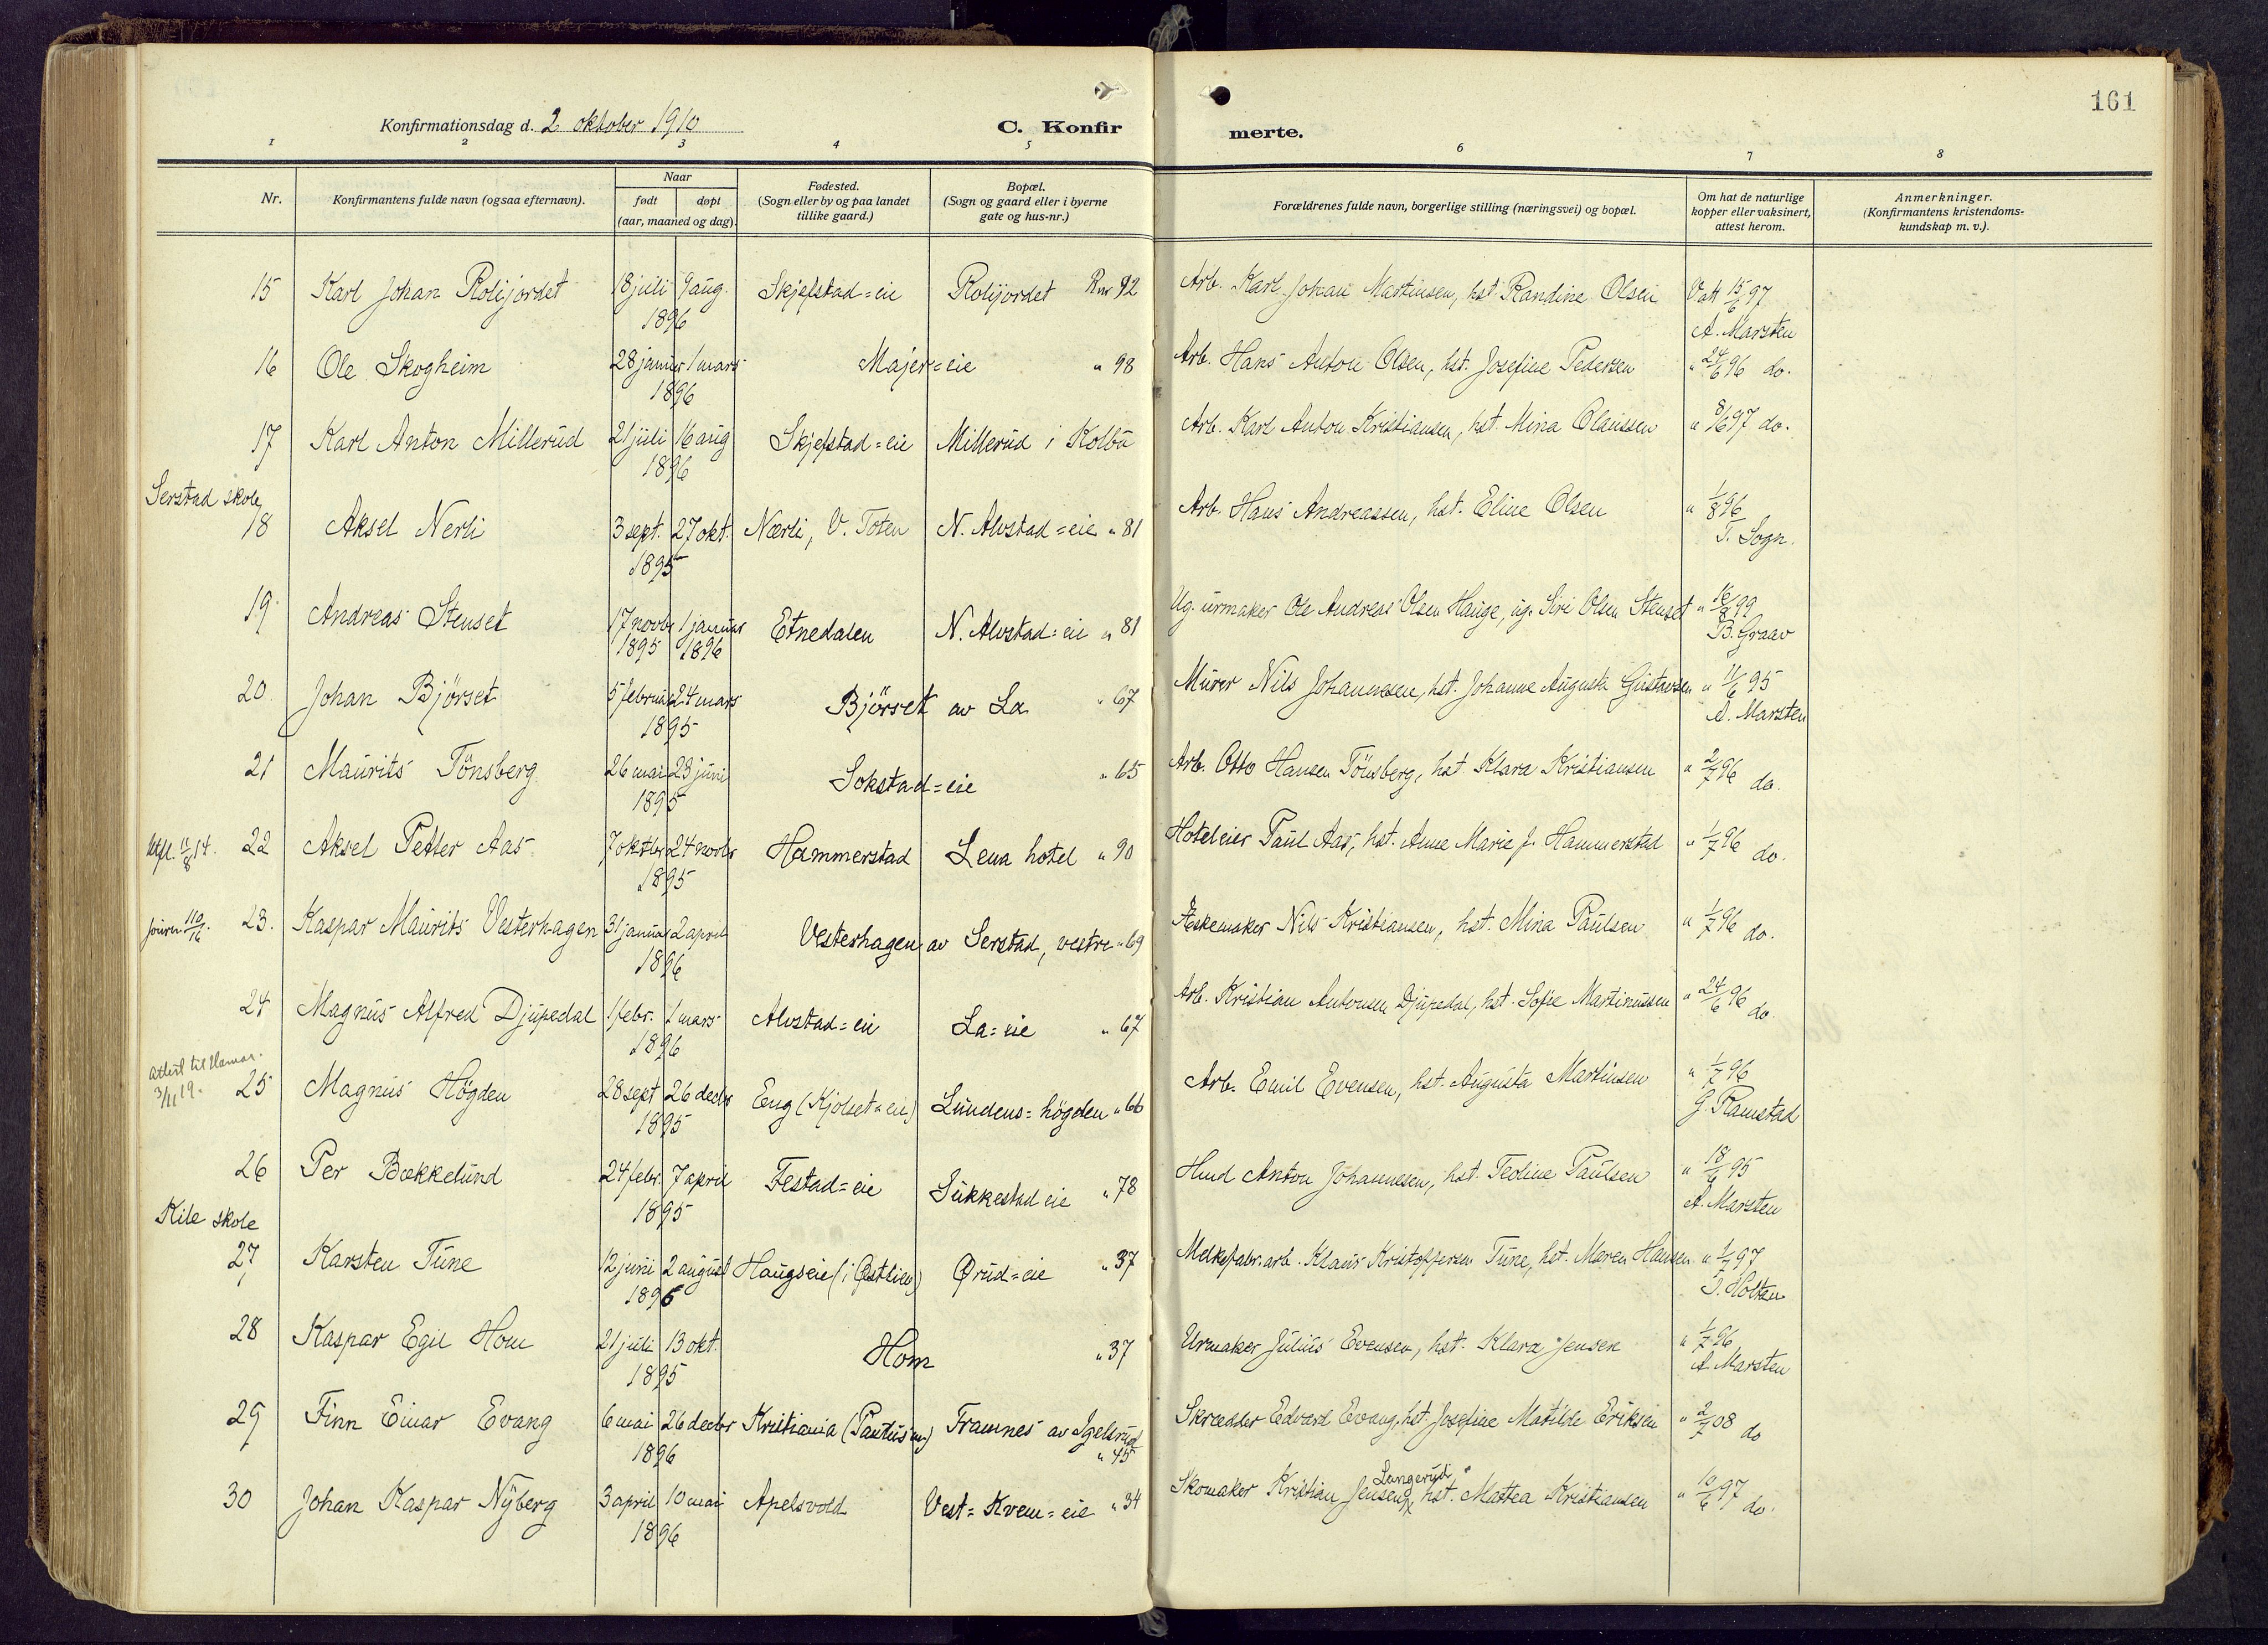 161
Konfirmationsdag d. 2 oktober 1910
C. Konfirmerte.
1 2 3 4 5 6 7 8
Nr.
Konfirmantens fulde navn (ogsaa efternavn).
Naar
født døpt
(aar, maaned og dag).
Fødested.
(Sogn eller by og paa landet
tillike gaard.)
Bopæl.
(Sogn og gaard eller i byerne
gate og hus-nr.)
Forældrenes fulde navn, borgerlige stilling (næringsvei) og bopæl.
Om hat de naturlige
kopper eller vaksinert,
attest herom.
Anmerkninger.
(Konfirmantens kristendoms-
kundskap m. v.).
15 Karl Johan Rolijordet 18 juli 9 aug. Skjefstad=eie Rolijordet Rnr 92 Arb. Karl Johan Martinsen, hst. Randine Olsen Vatt 15/6 97
1896 A. Marsten
16 Ole Skogheim 28 januar 1 mars Majer=eie " 98 Arb. Hans Anton Olsen, hst. Josefine Pedersen " 24/6 96 do.
1896
17 Karl Anton Millerud 21 juli 16 aug Skjefstad=eie Millerud i Kolbu Arb. Karl Anton Kristiansen, hst. Mina Olaussen " 8/6 97 do.
1896
Serstad skole
18 Aksel Nerli 3 sept. 27 okt. Nærli, V. Toten N. Alvstad=eie " 81 Arb. Hans Andreassen, hst. Eline Olsen " 1/8 96
1895 T. Sogn.
19 Andreas Stenset 17 novbr 1 januar Etnedalen N. Alvstad=eie " 81 Ug. urmaker Ole Andreas Olsen Hauge, ug. Siri Olsen Stenset " 16/8 99
1895 1896 B. Graav
20. Johan Bjørset 5 februar 24 mars Bjørset av La " 67 Murer Nils Johannesen, hst. Johanne Augusta Gustavsen " 11/6 95
1895 A. Marsten
21 Maurits Tönsberg 26 mai 23 juni Sokstad=eie " 65 Arb. Otto Hansen Tönsberg, hst. Klara Kristiansen " 2/7 96 do.
1895
Utfl. 11/8 14. 22 Aksel Petter Aas 7 oktbr 24 novbr Hammerstad Lena hotel " 90 Hoteleier Paul Aas, hst. Anne Marie J. Hammerstad " 1/7 96 do.
1895
journ. 110/16. 23. Kaspar Maurits Vesterhagen 31 januar 2 april Vesterhagen av Serstad, vestre " 69 Æskemaker Nils Kristiansen, hst. Mina Paulsen " 1/7 96 do.
1896
24 Magnus Alfred Djupedal 1 febr. 1 mars Alvstad=eie La=eie " 67 Arb. Kristian Antonsen Djupedal, hst. Sofie Martinussen " 24/6 96 do.
1896
attest til Hamar.
3/11 19. 25 Magnus Högden 28 sept 26 decbr Eng (Kjölset=eie) Lundens=högden " 66 Arb. Emil Evensen, hst. Augusta Martinsen " 1/7 96
1895 G. Ramstad
26 Per Bækkelund 24 febr. 7 april Festad=eie Sukkestad eie " 78 Hmd Anton Johannesen, hst. Tedine Paulsen " 18/6 95
1895 A. Marsten
Kile skole
27 Karsten Tune 12 juni 2 august Haugseie (i Østlien) Ørud=eie " 37 Melkefabr.arb. Klaus Kristoffersen Tune, hst. Maren Hansen " 1/7 97
1896 T. Holten
28 Kaspar Egil Hom 21 juli 13 okt. Hom " 37 Urmaker Julius Evensen, hst. Klara Jensen " 1/7 96
1895 A. Marsten
29 Finn Einar Evang 6 mai 26 decbr Kristiania (Paulus m.) Framnes av Igelsrud Skrædder Edvard Evang, hst. Josefine Matilde Eriksen " 2/7 08 do
1896 " 45
30 Johan Kaspar Nyberg 3 april 10 mai Apelsvold Vest=Kvem=eie " 34 Skomaker Kristian Jensen Langerud, hst. Mattea Kristiansen " 10/6 97 do.
1896